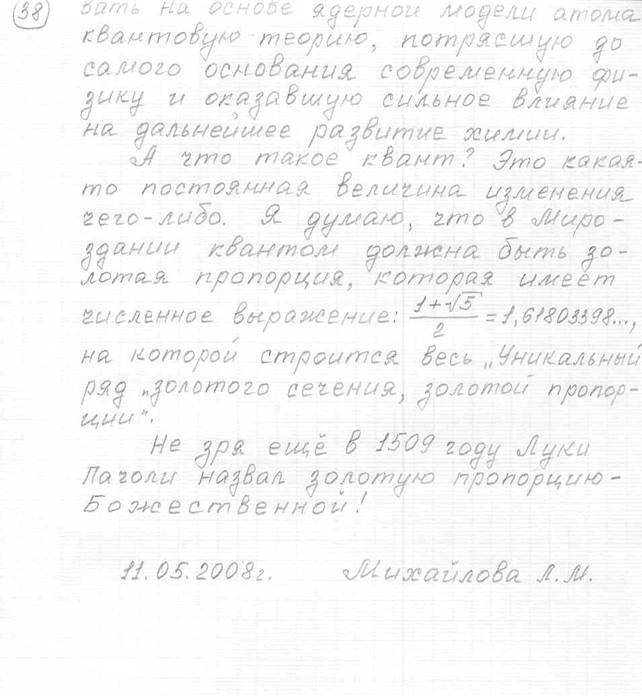 38
вать на основе ядерной модели атома
квантовую теорию, потрясшую до
самого основания современную фи-
зику и оказавшую сильное влияние
на дальнейшее развитие химии.
А что такое квант? Это какая-
то постоянная величина изменения
чего-либо. Я думаю, что в Миро-
здании квантом должна быть зо-
лотая пропорция, которая имеет
численное выражение: (1+√5)/2 = 1,61803398...,
на которой строится весь „Уникальный
ряд „золотого сечения, золотой пропор-
ции".
Не зря ещё в 1509 году Луки
Пачоли назвал золотую пропорцию-
Божественной!
11.05.2008г. Михайлова Л.М.